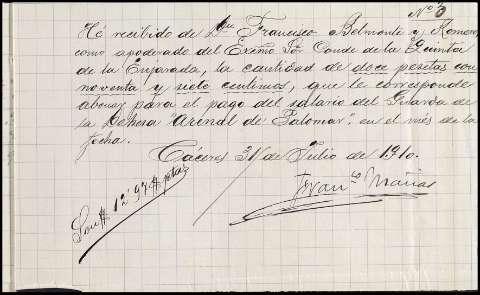 Nº 3
He recibido de Don Francisco Belmonte y Romero
como apoderado del Exmo Sor Conde de la Quinta
de la Enjarada, la cantidad de doce pesetas con
noventa y siete centimos, que le corresponde
abonar para el pago del salario del Guarda de
la Dehesa "Arenal de Palomar", en el mes de la
fecha.
Cáceres 31 de Julio de 1910.
Son # 12'97 # ptas
Franco Marias